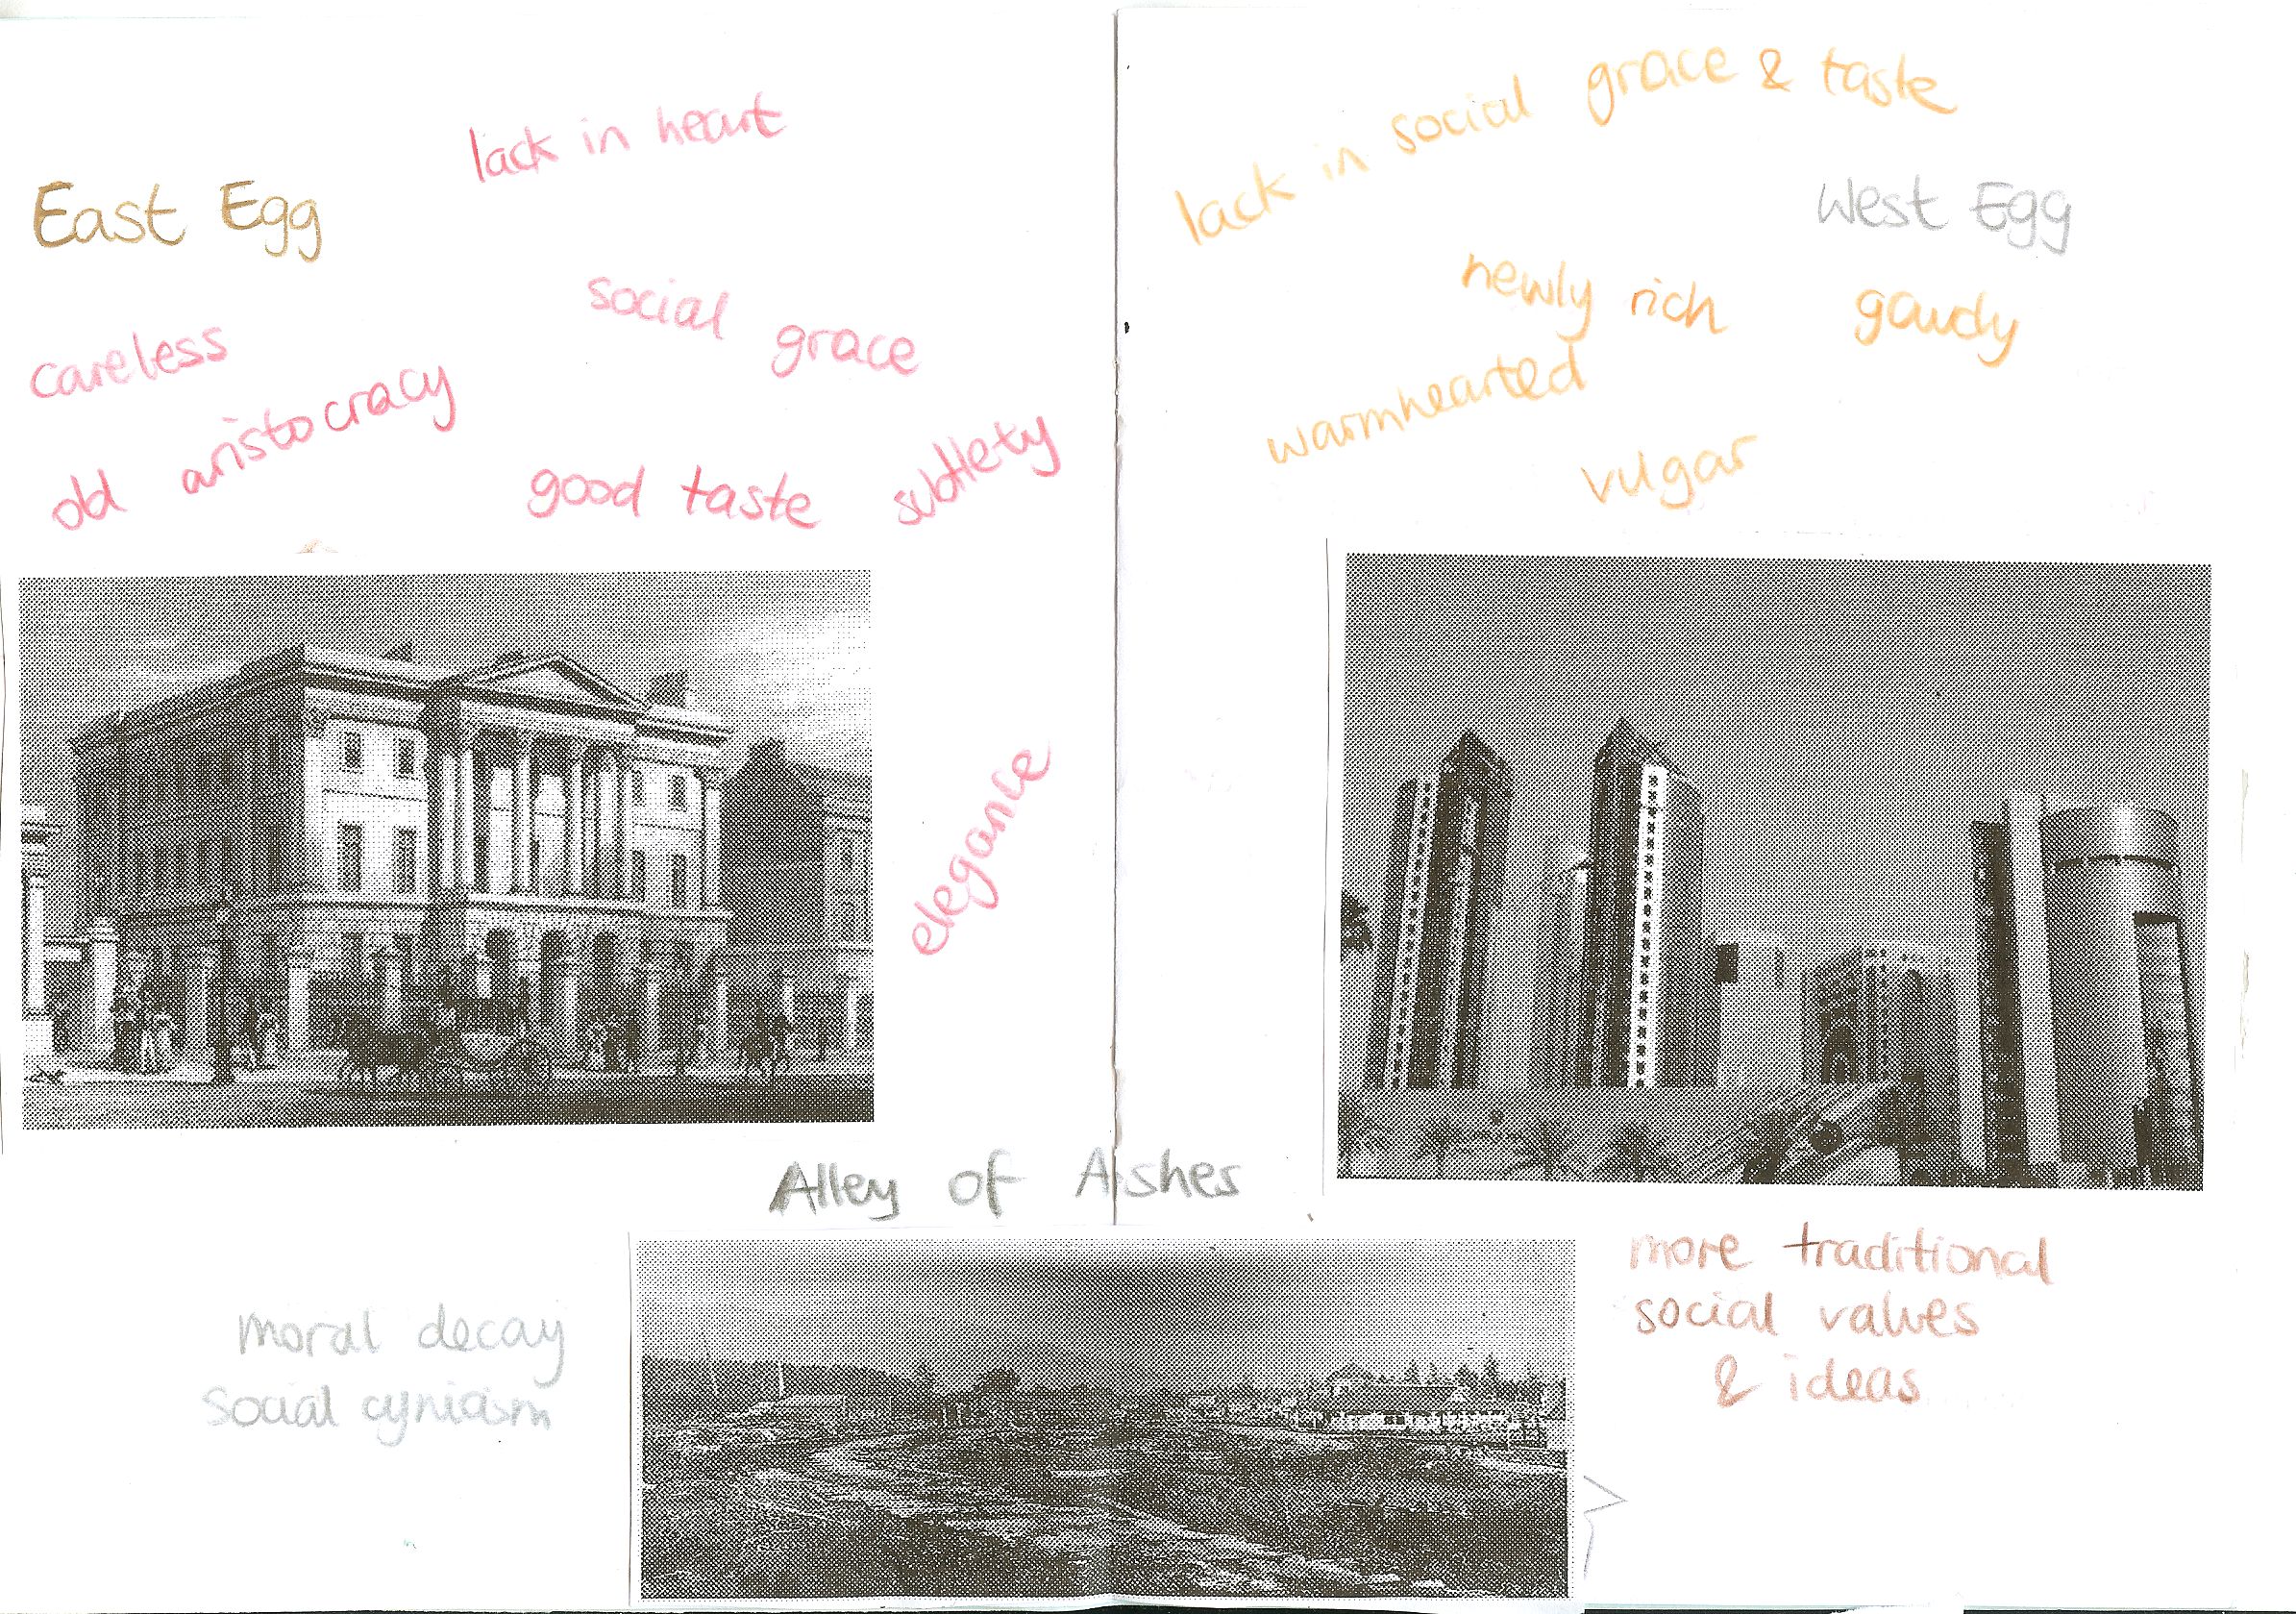 East Egg
lack in heart
careless
social grace
old aristocracy
good taste
subtlety
elegance
lack in social grace & taste
West Egg
newly rich
gaudy
warmhearted
vulgar
Alley of Ashes
moral decay
social cynicism
more traditional
social values
& ideas